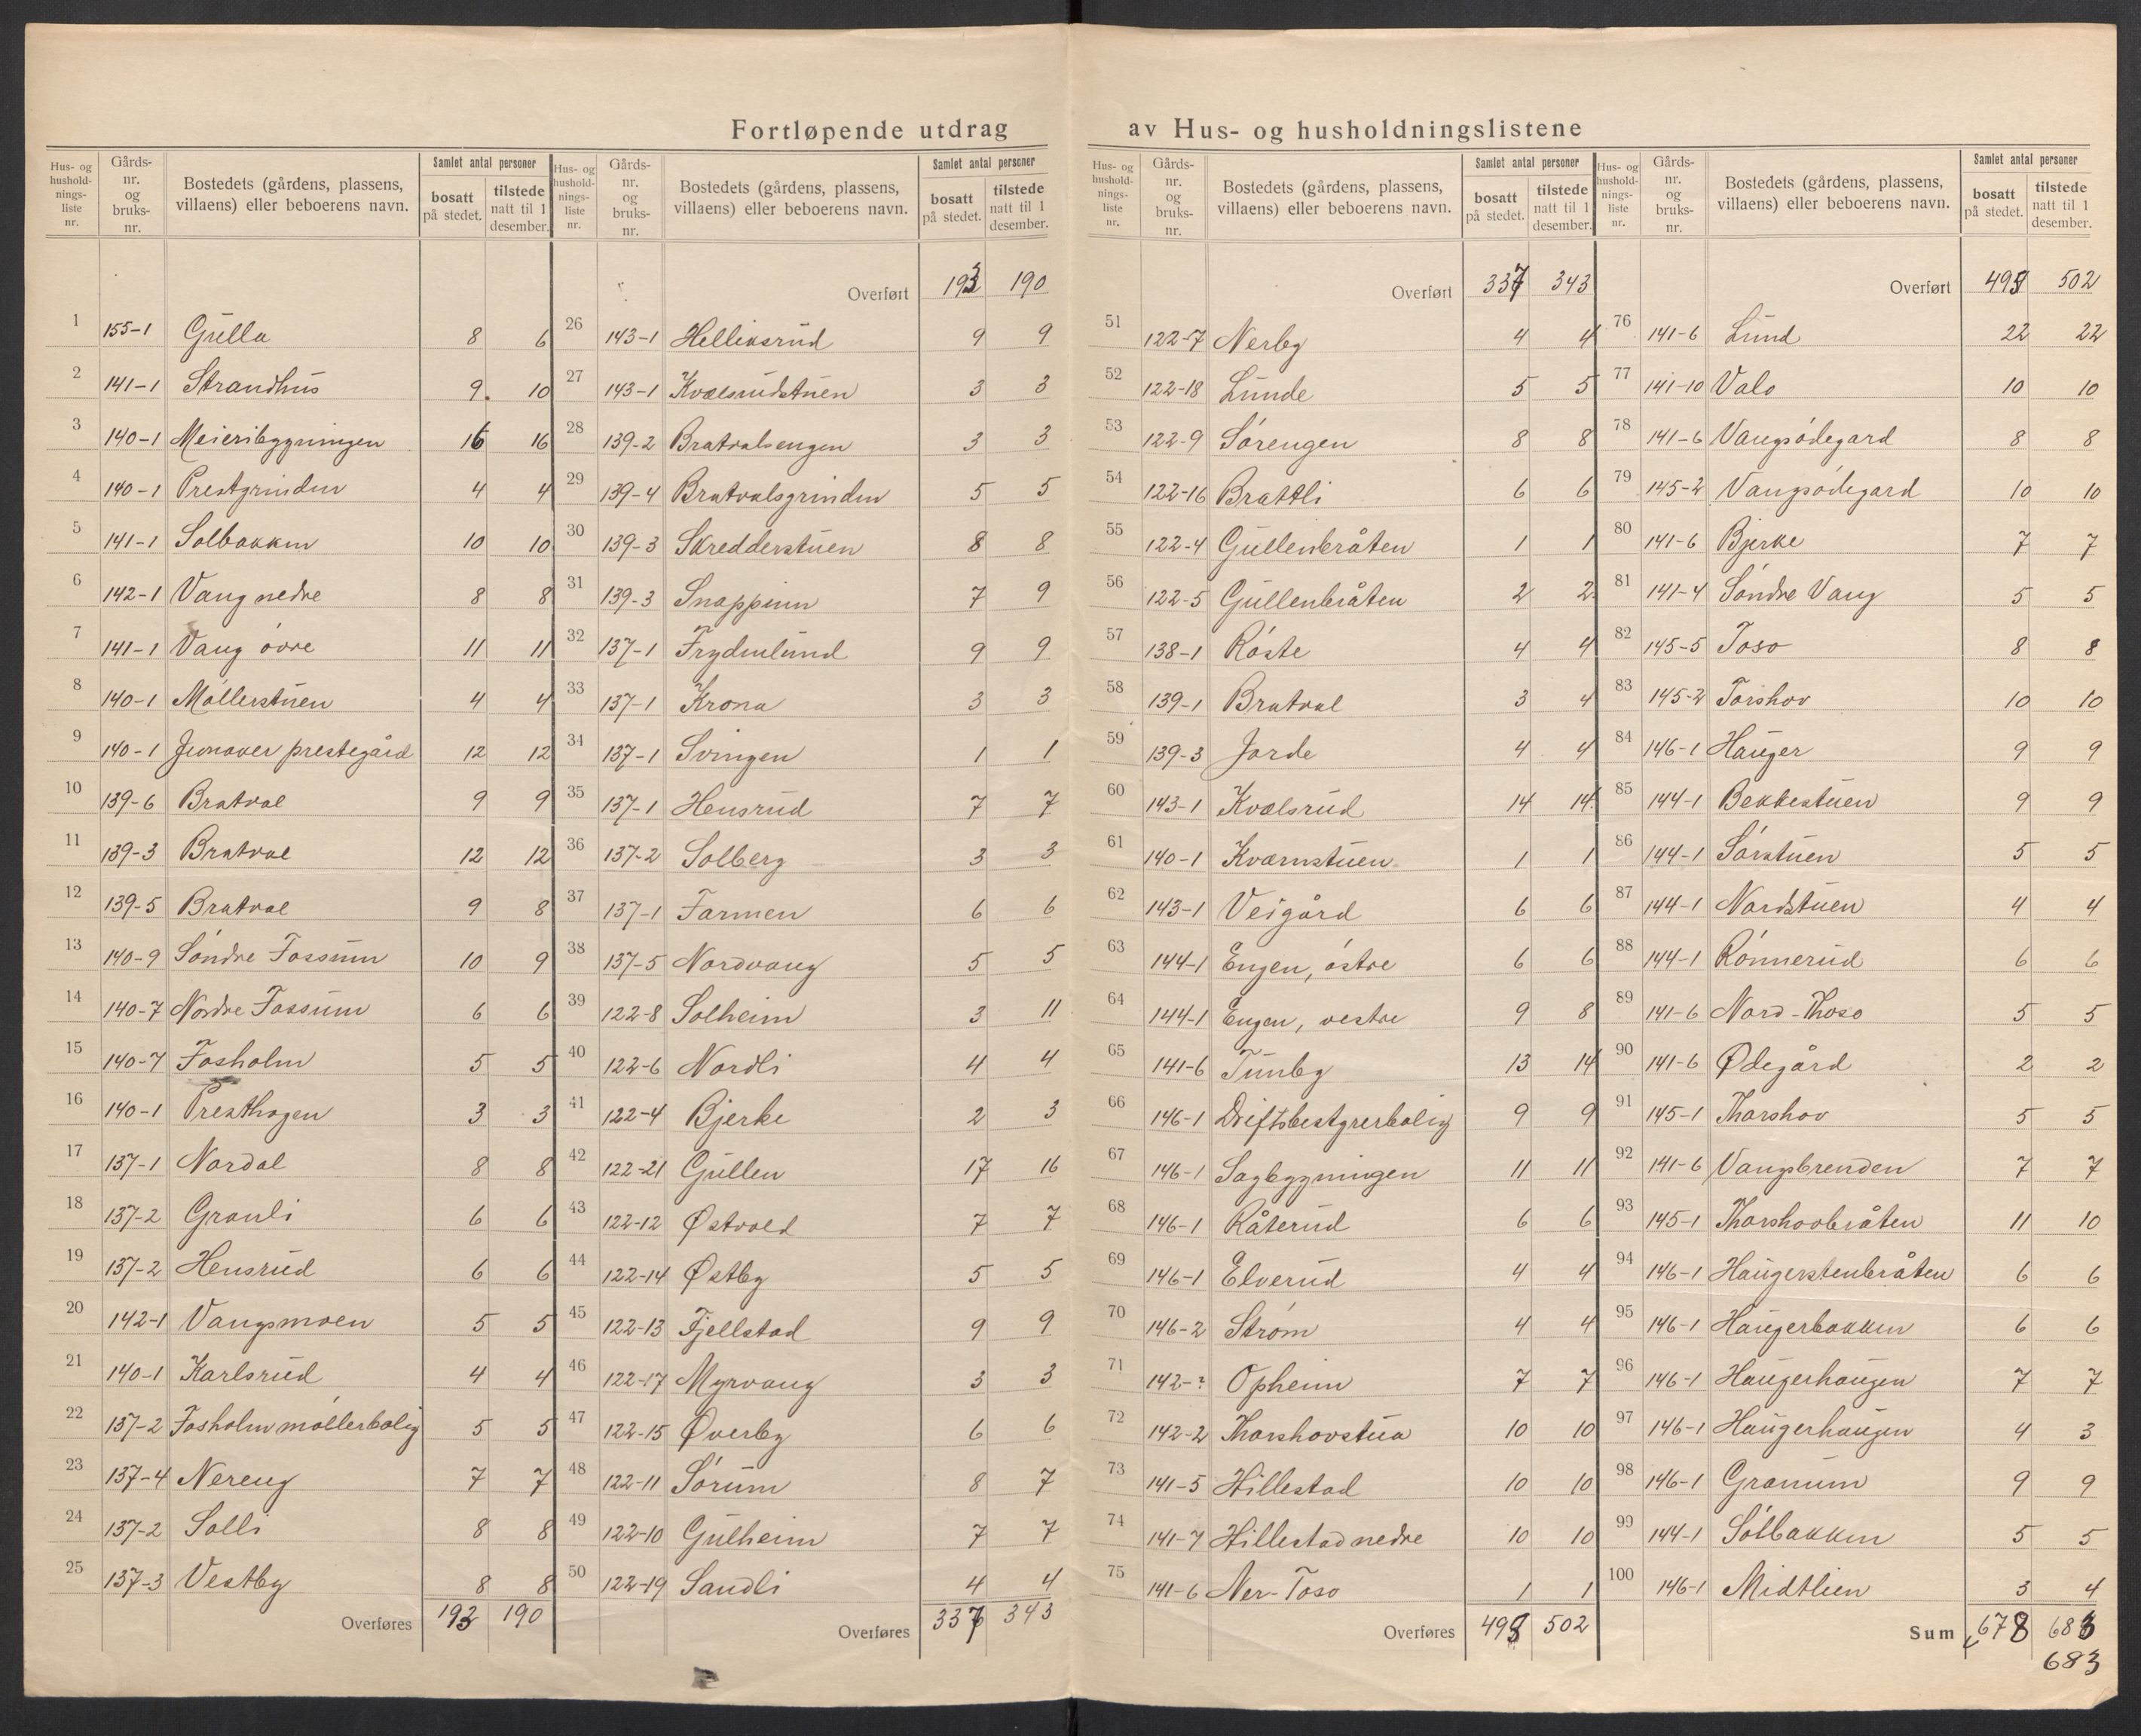 Fortløpende utdrag av Hus- og husholdningslistene
Hus- og husholdnings-liste nr. | Gårds-nr. og bruks-nr. | Bostedets (gårdens, plassens, villaens) eller beboerens navn. | Samlet antal personer bosatt på stedet. | tilstede natt til 1 desember.
1 155-1 Gulla 8 6
2 141-1 Strandhus 9. 10
3 140-1 Meieribygningen 16 16
4 140-1 Prestgrinden 4 4
5 141-1 Solbakken 10 10
6 142-1 Vang nedre 8 8
7 141-1 Vang óvre 11 11
8 140-1 Móllerstuen 4 4
9 140-1 Jevnaker prestegård 12 12
10 139-6 Bratval 9 9
11 139-3 Bratval 12 12
12 139-5 Bratval 9 8
13 140-9 Sóndre Fossum 10 9
14 140-7 Nordre Fossum 6 6
15 140-7 Fosholm 5 5
16 140-1 Presthagen 3 3
17 137-1 Nordal 8 8
18 137-2 Granli 6 6
19 137-2 Hensrud 6 6
20 142-1 Vangsmoen 5 5
21 140-1 Karlsrud 4 4
22 137-2 Fosholm móllerbolig 5 5
23 137-4 Nereng 7 7
24 137-2 Solli 8 8
25 137-3 Vestby 8 8
Overføres 193 190
Hus- og husholdnings-liste nr. | Gårds-nr. og bruks-nr. | Bostedets (gårdens, plassens, villaens) eller beboerens navn. | Samlet antal personer bosatt på stedet. | tilstede natt til 1 desember.
Overført 193 190
26 143-1 Helliksrud 9 9
27 143-1 Kvælsrudstuen 3 3
28 139-2 Bratvalsengen 3 3
29 139-4 Bratvalsgrinden 5 5
30 139-3 Skredderstuen 8 8
31 139-3 Snappinn 7 9
32 137-1 Frydenlund 9 9
33 137-1 Krona 3 3
34 137-1 Svingen 1 1
35 137-1 Hensrud 7 7
36 137-2 Solberg 3 3
37 137-1 Farmen 6 6
38 137-5 Nordvang 5 5
39 122-8 Solheim 3 11
40 122-6 Nordli 4 4
41 122-4 Bjerke 2 3
42 122-21 Gullen 17 16
43 122-12 Østvold 7 7
44 122-14 Østby 5 5
45 122-13 Fjellstad 9 9
46 122-17 Myrvang 3 3
47 122-15 Øverby 6 6
48 122-11 Sórum 8 7
49 122-10 Gulheim 7 7
50 122-19 Sandli 4 4
Overføres 337 343
Hus- og husholdnings-liste nr. | Gårds-nr. og bruks-nr. | Bostedets (gårdens, plassens, villaens) eller beboerens navn. | Samlet antal personer bosatt på stedet. | tilstede natt til 1 desember.
Overført 337 343
51 122-7 Nerby 4 4
52 122-18 Lunde 5 5
53 122-9 Sórengen 8 8
54 122-16 Brattli 6 6
55 122-4 Gullenbråten 1 1
56 122-5 Gullenbråten 2 2
57 138-1 Róste 4 4
58 139-1 Bratval 3 4
59 139-3 Jorde 4 4
60 143-1 Kvælsrud 14 14
61 140-1 Kvarnstuen 1 1
62 143-1 Veigård 6 6
63 144-1 Engen, óstre 6 6
64 144-1 Engen, vestre 9 8
65 141-6 Tunby 13 14
66 146-1 Driftsbestyrerbolig 9 9
67 146-1 Sagbygningen 11 11
68 146-1 Råterud 6 6
69 146-1 Elverud 4 4
70 146-2 Stróm 4 4
71 142-? Opheim 7 7
72 142-2 Thorshovstua 10 10
73 141-5 Hillestad 10 10
74 141-7 Hillestad nedre 10 10
75 141-6 Ner-Toso 1 1
Overføres 498 502
Hus- og husholdnings-liste nr. | Gårds-nr. og bruks-nr. | Bostedets (gårdens, plassens, villaens) eller beboerens navn. | Samlet antal personer bosatt på stedet. | tilstede natt til 1 desember.
Overført 498 502
76 141-6 Lund 22 22
77 141-10 Valo 10 10
78 141-6 Vangsódegard 8 8
79 145-2 Vangsódegard 10 10
80 141-6 Bjerke 7 7
81 141-4 Sóndre Vang 5 5
82 145-5 Toso 8 8
83 145-2 Torshov 10 10
84 146-1 Hauger 9 9
85 144-1 Bekkestuen 9 9
86 144-1 Sórstuen 5 5
87 144-1 Nordstuen 4 4
88 144-1 Rónnerud 6 6
89 141-6 Nord-Thoso 5 5
90 141-6 Ødegård 2 2
91 145-1 Thorshov 5 5
92 141-6 Vangsbrenden 7 7
93 145-1 Thorshovbråten 11 10
94 146-1 Haugerstenbråten 6 6
95 146-1 Haugerbakken 6 6
96 146-1 Haugerhaugen 7 7
97 146-1 Haugerhaugen 4 3
98 146-1 Granum 9 9
99 144-1 Solbakken 5 5
100 146-1 Midtlien 3 4
Sum 678 683
683